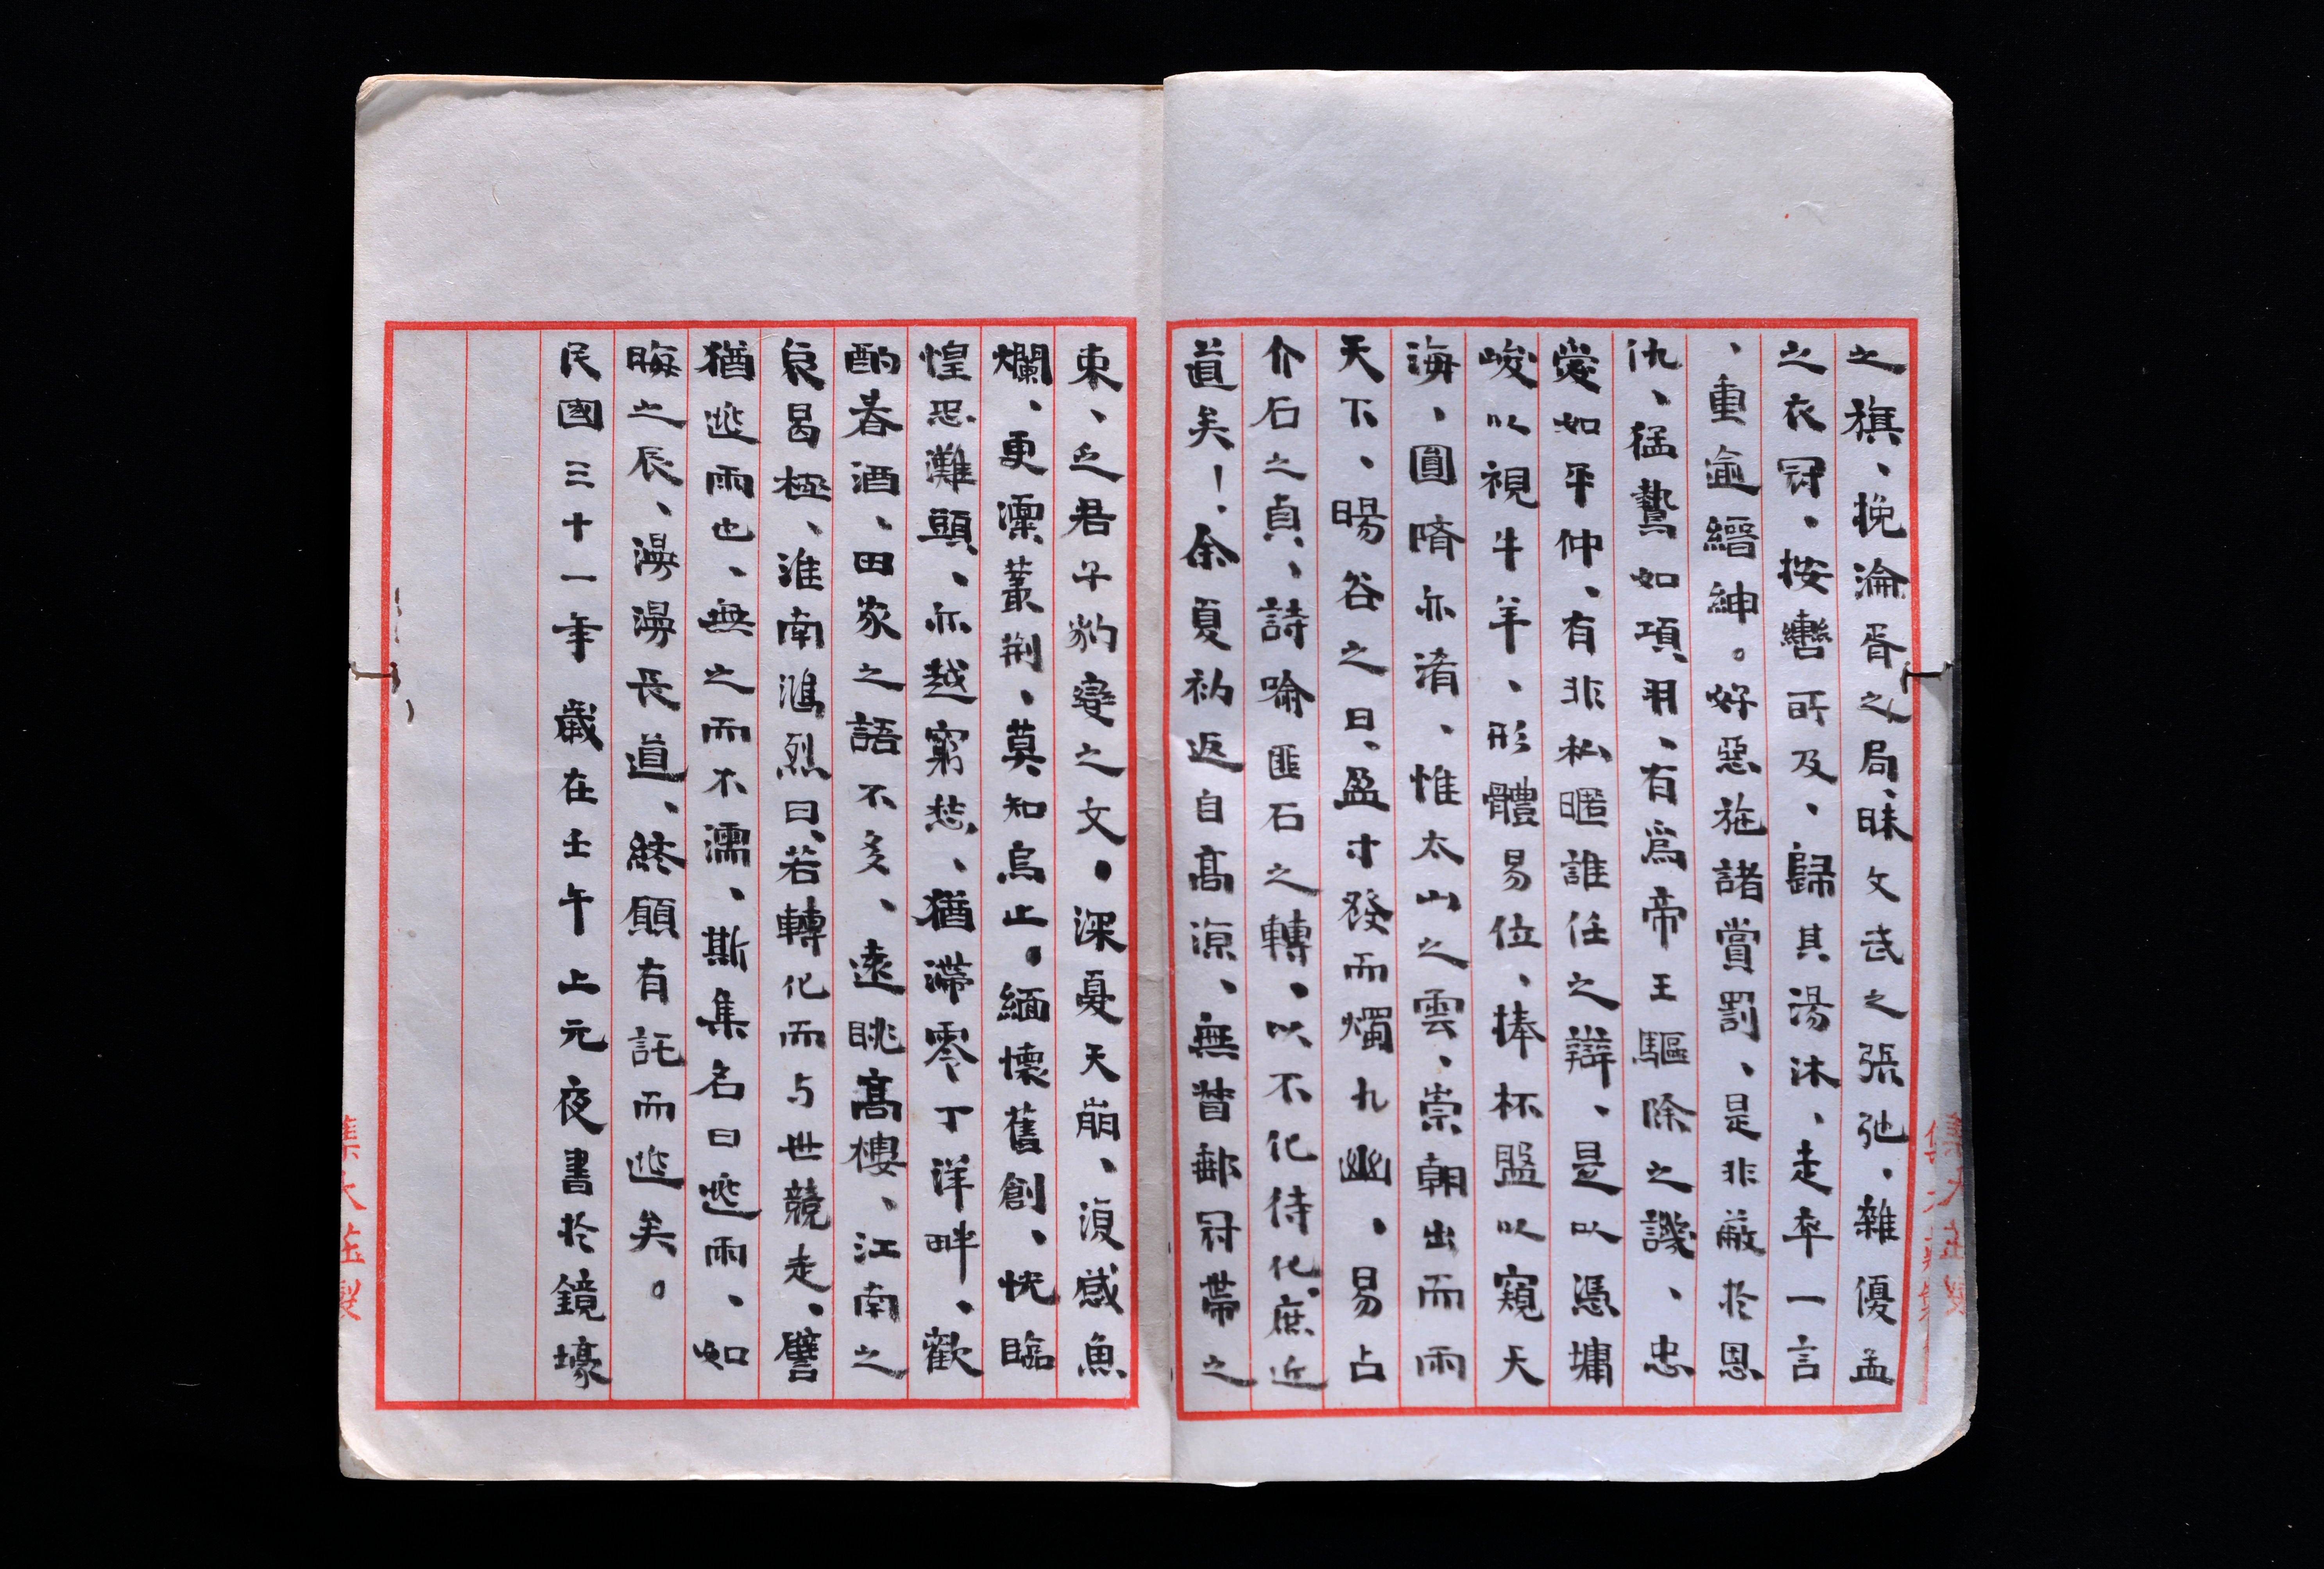 之旗、挽淪胥之局、昧文武之張弛、雜優孟
之衣冠、按轡所及、歸其湯沐、走卒一言
、重逾縉紳。好惡施諸賞罰、是非蔽於恩
仇、猛鷙如項羽、有為帝王驅除之譏、忠
愛如平仲、有非私暱誰任之辯、是以憑墉
峻以視牛羊、形體易位、捧杯盤以窺天
海、圓隋亦淆、惟太山之雲、崇朝出而雨
天下、暘谷之日、盈寸發而燭九幽、易占
介石之貞、詩喻匪石之轉、以不化待化、庶近
道矣！余夏初返自高涼、無替郵冠帶之
束、乏君子豹變之文。深憂天崩、復感魚
爛、更凜叢荆、莫知烏止。緬懷舊創、恍臨
惶恐灘頭、亦越窮愁、猶滯零丁洋畔、歡
酌春酒、田家之語不多、遠眺高樓、江南之
哀曷極、淮南鴻烈曰、若轉化而与世競走。譬
猶逃雨也、無之而不濡、斯集名曰逃雨、如
晦之辰、漫漫長道、終願有託而逃矣。
民國三十一年歲在壬午上元夜書於鏡壕
集大莊製